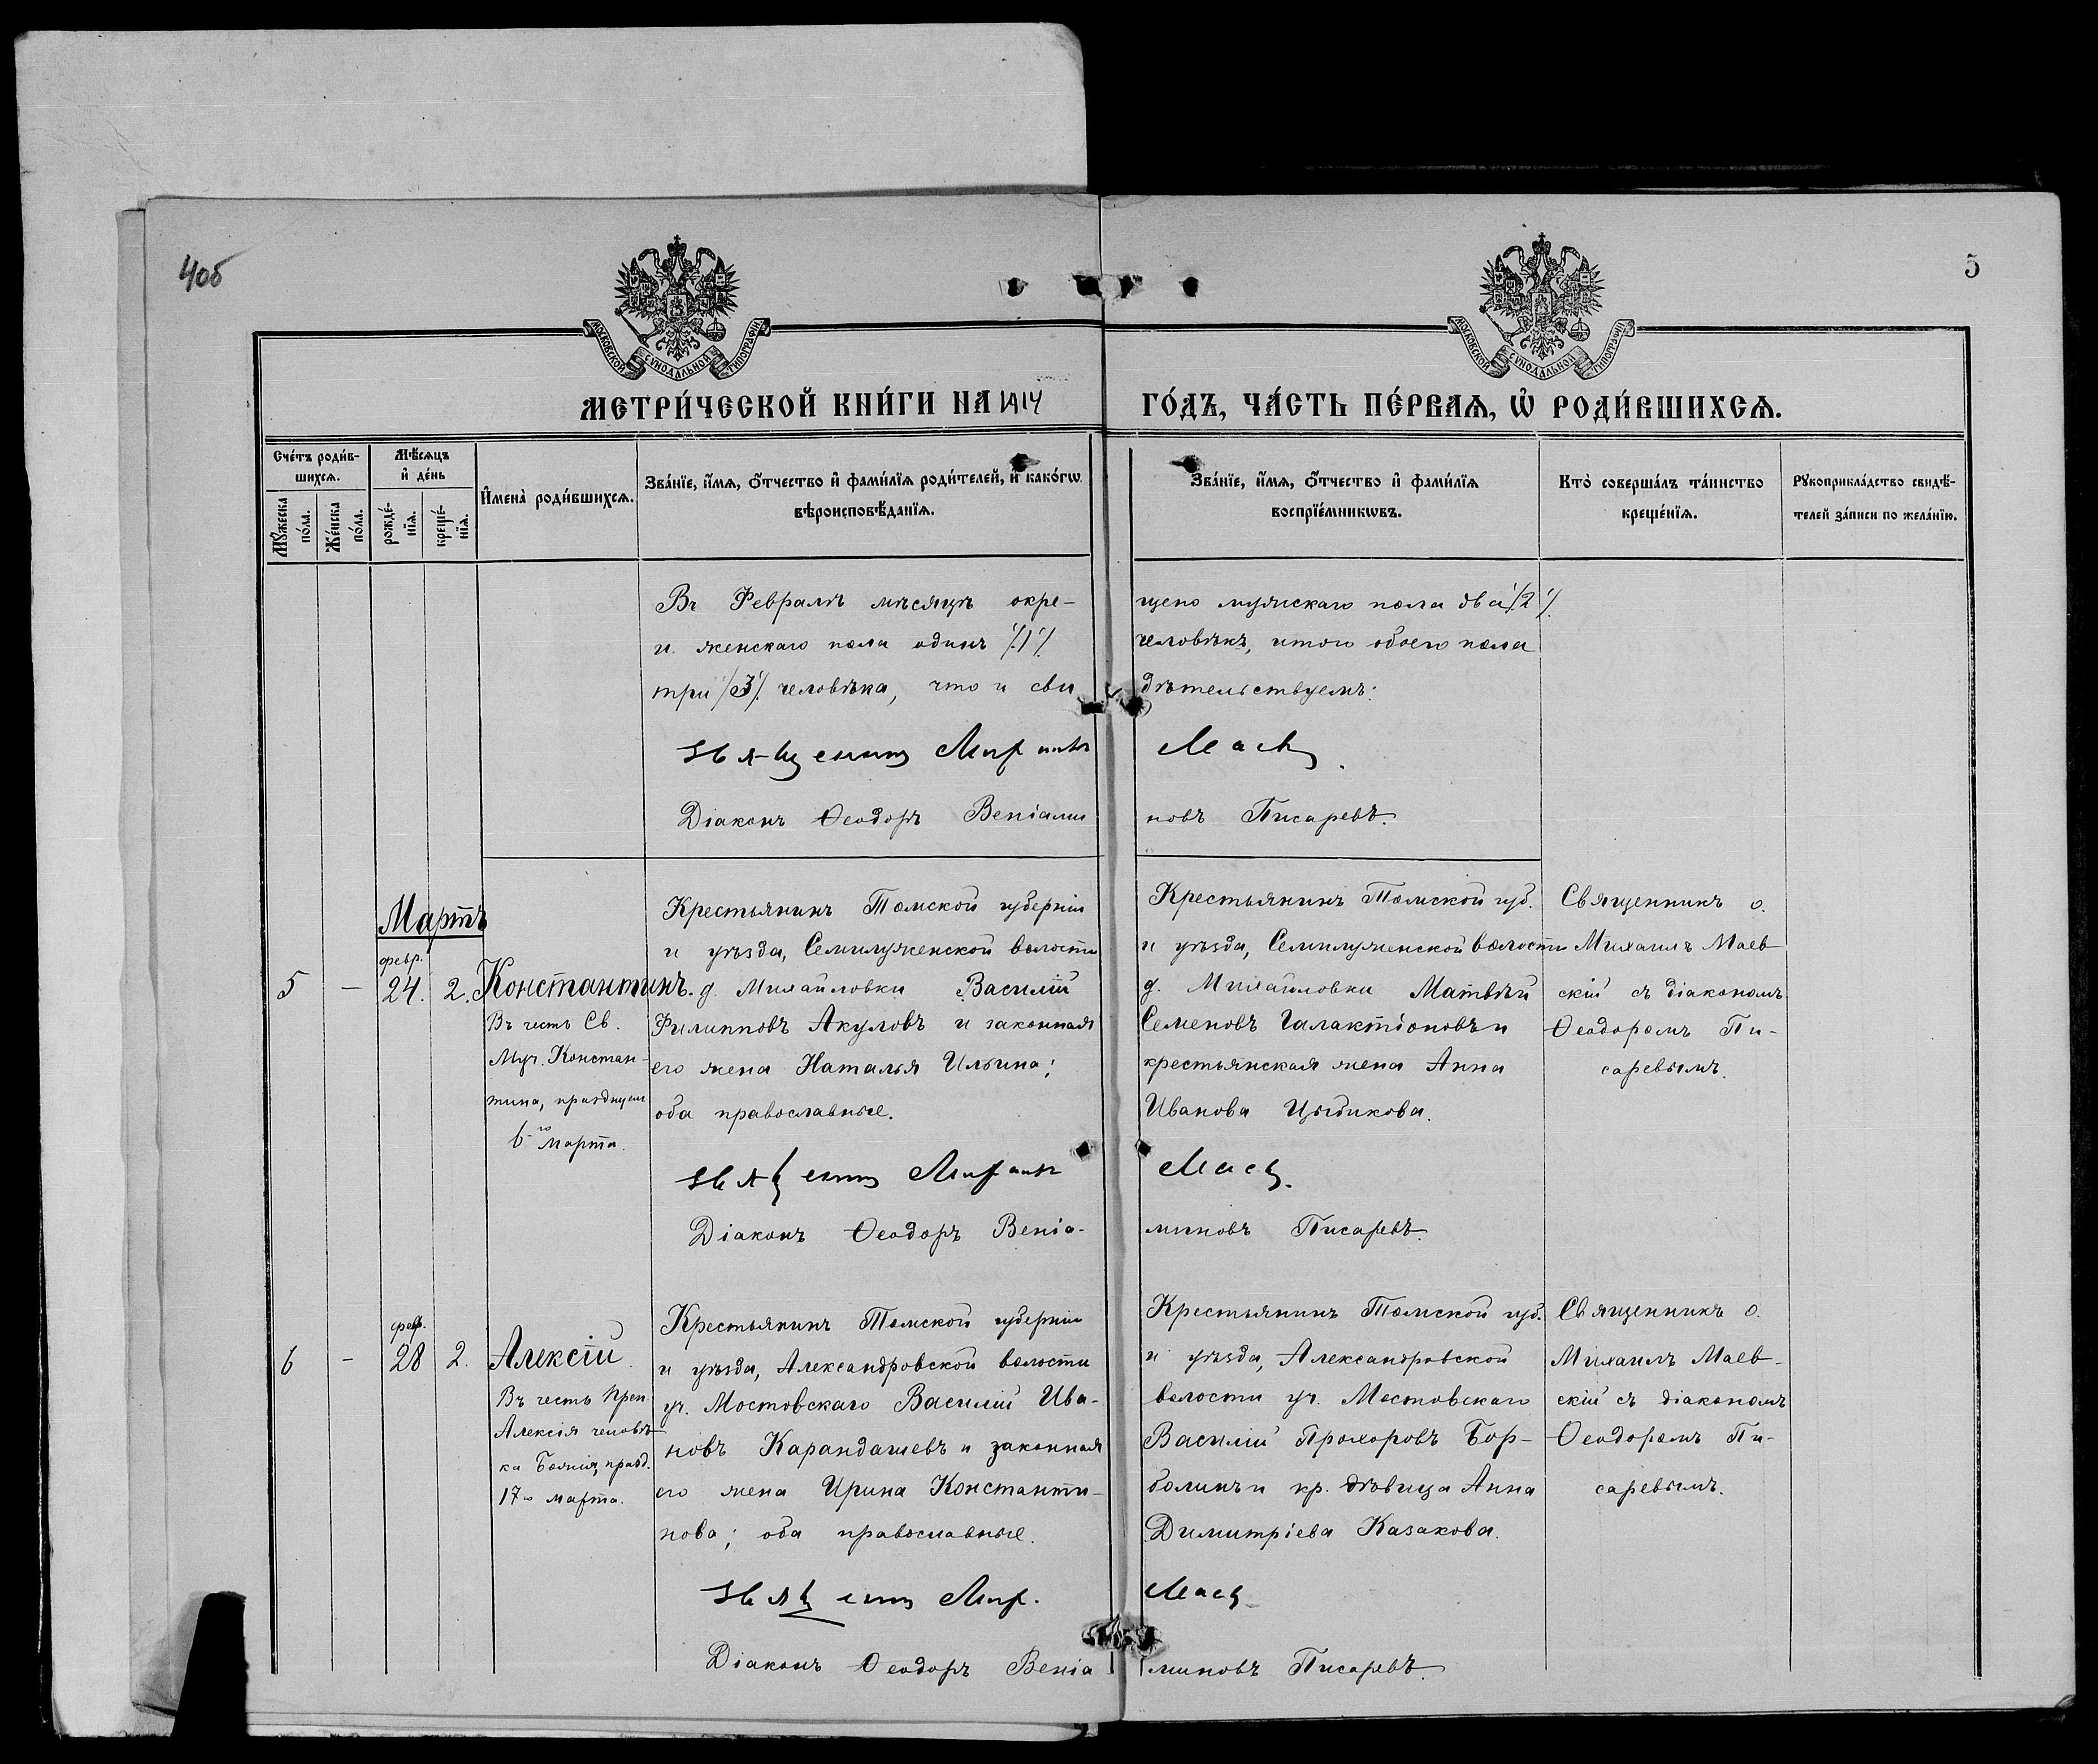 4об
5
МОСКОВСКОЙ СѴНОДАЛЬНОЙ ТИПОГРАФІИ
МОСКОВСКОЙ СѴНОДАЛЬНОЙ ТИПОГРАФІИ
МЕТРИ́ЧЕСКОЙ КНИ́ГИ НА 1914
ГО́ДЪ, ЧА́СТЬ ПЕ́РВАѦ, Ѡ҆ РОДИ́ВШИХСѦ.
Сче́тъ роди́в-
шихсѧ.
Мꙋ́жеска
по́ла.
Же́нска
по́ла.
Мѣ́сѧцъ
и҆ де́нь
рожде́-
нїѧ.
креще́-
нїѧ.
И҆мена̀ роди́вшихсѧ.
Зва́нїе, и҆́мѧ, о҆́тчество и҆ фами́лїѧ роди́телей, и҆ како́гѡ
вѣроисповѣ́данїѧ.
Зва́нїе, и҆́мѧ, о҆́тчество и҆ фами́лїѧ
воспрїе́мникѡвъ.
Кто̀ соверша́лъ та́инство
креще́нїѧ.
Рꙋкоприкла́дство свидѣ́-
телей за́писи по жела́нїю.
Въ Февралѣ мѣсяцѣ окре-
и женскаго пола одинъ /1/
три /3/ человѣка, что и сви
Священникъ Михаилъ
Діаконъ Ѳеодоръ Веніами
щено мужскаго пола два /2/
человѣкъ, итого обоего пола
дѣтельствуемъ:
Маев
новъ Писаревъ.
Мартъ
5
—
февр.
24.
2.
Константинъ.
Въ честь Св.
Муч. Констан-
тина, празднуем
6-го Марта.
Крестьянинъ Томской губерніи
и уѣзда, Семилуженской волости
д. Михайловки Василій
Филипповъ Акуловъ и законная
его жена Наталья Ильина;
оба православные.
Священникъ Михаилъ
Діаконъ Ѳеодоръ Веніа-
Крестьянинъ Томской губ.
и уѣзда, Семилуженской волости
д. Михайловки Матвѣй
Семеновъ Галактіоновъ и
крестьянская жена Анна
Иванова Цыбикова.
Маев
миновъ Писаревъ.
Священникъ о.
Михаилъ Маев-
скій съ діакономъ
Ѳеодоромъ Пи-
саревымъ.
6
—
февр.
28
2.
Алексій
Въ честь Преп
Алексія человѣ-
ка Божія, празд.
17го марта.
Крестьянинъ Томской губерніи
и уѣзда, Александровской волости
уч. Мостовскаго Василій Ива-
новъ Карандашевъ и законная
его жена Ирина Константи-
нова; оба православные.
Священникъ Мих.
Діаконъ Ѳеодоръ Веніа
Крестьянинъ Томской губ.
и уѣзда, Александровской
волости уч. Мостовскаго
Василій Прохоровъ Бор-
болинъ и кр. дѣвица Анна
Димитріева Казакова.
Маев
миновъ Писаревъ.
Священникъ о.
Михаилъ Маев-
скій съ діакономъ
Ѳеодоромъ Пи-
саревымъ.